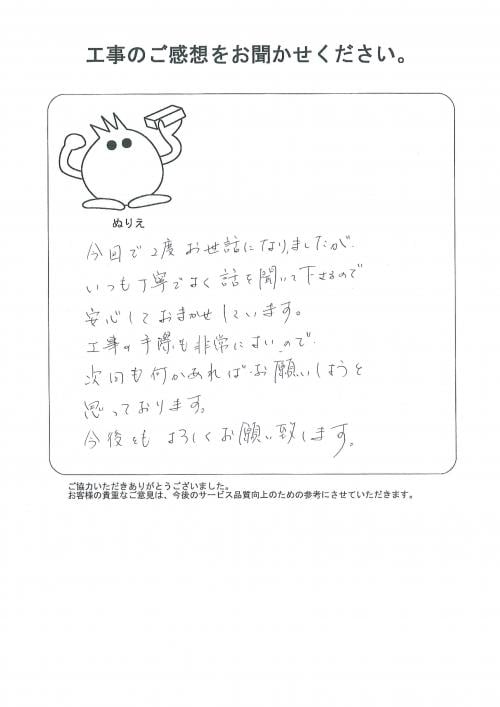 工事のご感想をお聞かせください。
ぬりえ
今回で2度お世話になりましたが
いつも丁寧でよく話を聞いて下さるので
安心しておまかせしています。
工事の手際も非常によいので
次回も何かあればお願いしようと
思っております。
今後ともよろしくお願い致します。
ご協力いただきありがとうございました。
お客様の貴重なご意見は、今後のサービス品質向上のための参考にさせていただきます。